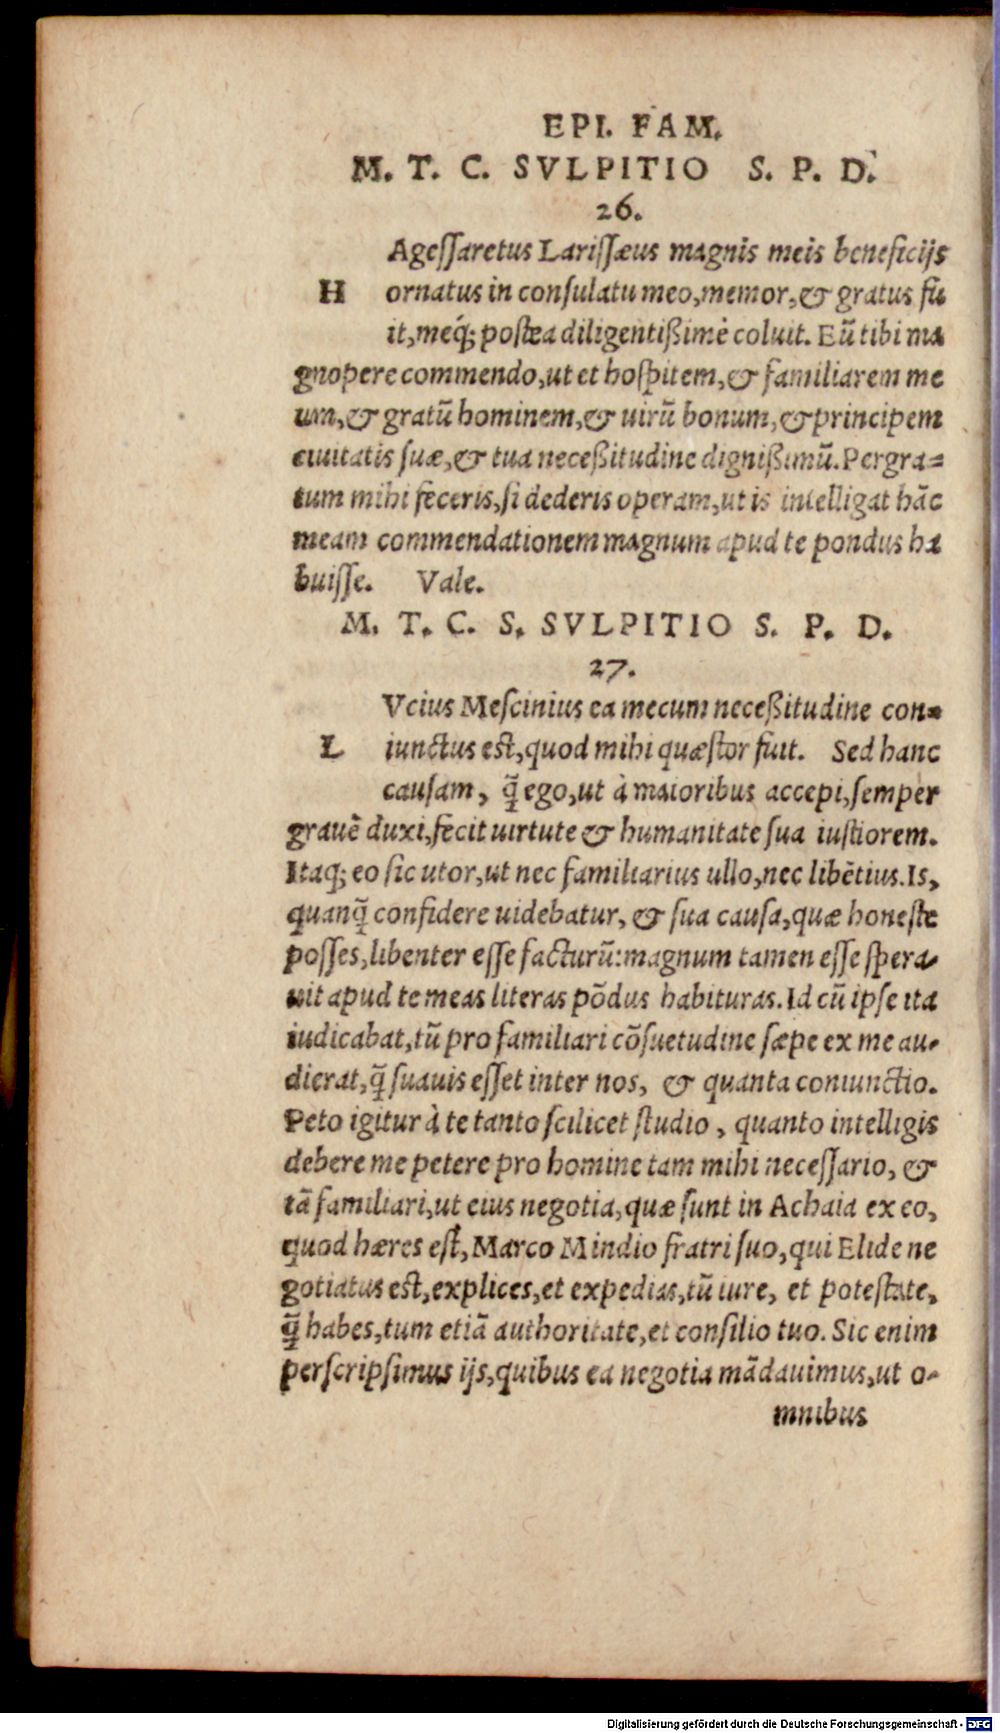 EPI. FAM.
M. T. C. SVLPITIO S. P. D.
26.
Ageſſaretus Lariſſæus magnis meis beneficijs
H ornatus in conſulatu meo, memor, & gratus fu
it, meq́; poſtea diligentißimè coluit. Eũ tibi ma
gnopere commendo, ut et hoſpitem, & familiarem me
um, & gratũ hominem, & uirũ bonum, & principem
ciuitatis ſuæ, & tua neceßitudine dignißimũ. Pergra-
tum mihi feceris, ſi dederis operam, ut is intelligat hãc
meam commendationem magnum apud te pondus ha
buiſſe. Vale.
M. T. C. S. SVLPITIO S. P. D.
27.
Vcius Meſcinius ea mecum neceßitudine con-
L iunctus eſt, quod mihi quæſtor fuit. Sed hanc
cauſam, q̃ ego, ut à maioribus accepi, ſemper
grauẽ duxi, fecit uirtute & humanitate ſua iuſtiorem.
Itaq; eo ſic utor, ut nec familiarius ullo, nec libẽtius. Is,
quanq̃ confidere uidebatur, & ſua cauſa, quæ honeſte
poſſes, libenter eſſe facturũ: magnum tamen eſſe ſpera-
uit apud te meas literas põdus habituras. Id cũ ipſe ita
iudicabat, tũ pro familiari cõſuetudine ſæpe ex me au-
dierat, q̃ ſuauis eſſet inter nos, & quanta coniunctio.
Peto igitur à te tanto ſcilicet ſtudio, quanto intelligis
debere me petere pro homine tam mihi neceſſario, &
tã familiari, ut eius negotia, quæ ſunt in Achaia ex eo,
quod hæres eſt, Marco Mindio fratri ſuo, qui Elide ne
gotiatus eſt, explices, et expedias, tũ iure, et poteſtate,
q̃ habes, tum etiã authoritate, et conſilio tuo. Sic enim
perſcripſimus ijs, quibus ea negotia mãdauimus, ut o-
mnibus
Digitalisierung gefördert durch die Deutsche Forschungsgemeinschaft - DFG